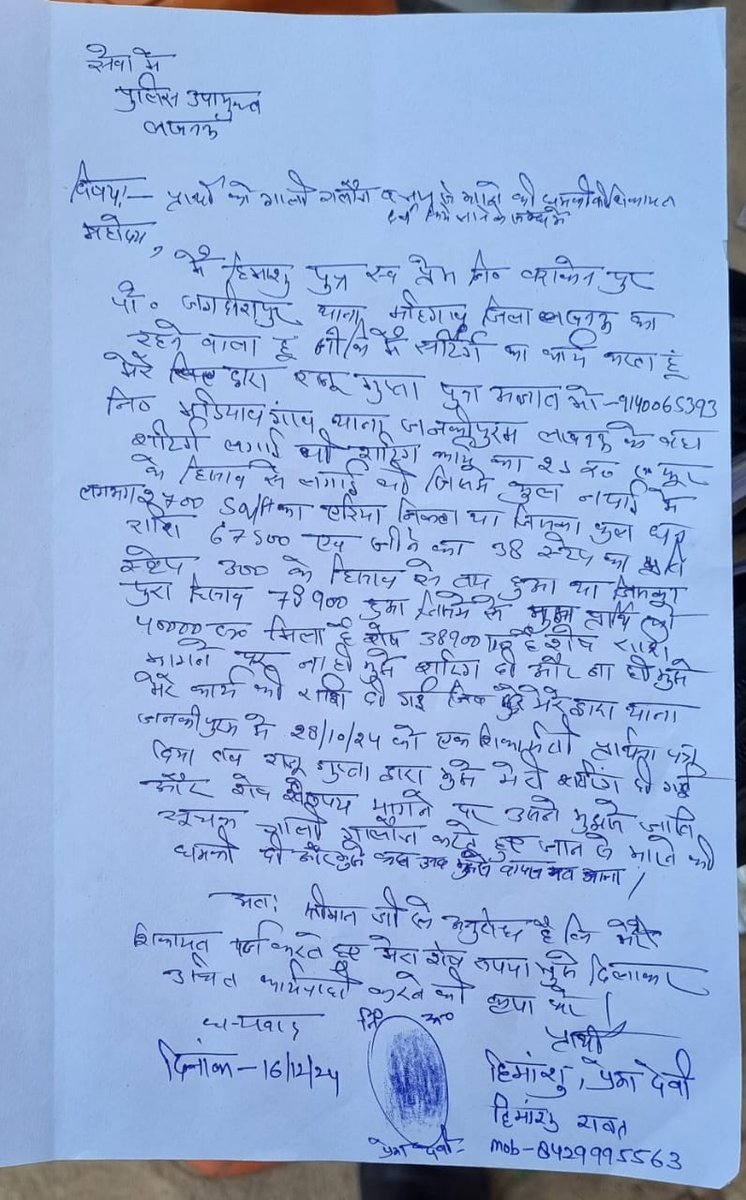 सेवा में
पुलिस उपायुक्त
लखनऊ
विषय:- प्रार्थी को गाली गलौज व जान से मारने की धमकी की शिकायत
दर्ज किये जाने के सम्बन्ध में
महोदय,
मैं हिमांशु पुत्र स्व प्रेम नि०
पो० जगदीशपुर थाना जिला लखनऊ का
रहने वाला हूं जोकि मैं सेटिंग का कार्य करता हूं
मेरे द्वारा राजू गुप्ता पुत्र अज्ञात मो-9140065393
नि० मडियाव गांव थाना जानकीपुरम लखनऊ के यहां
शटरिंग लगाई थी शटरिंग का 25 रू०
के हिसाब से लगाई थी जिसमें कुल नपाई में
लगभग 2700 Sqft का एरिया निकला था जिसका कुल धन
राशि 67500 एव जीने का 38 स्टेप का प्रति
स्टेप 300 के हिसाब से तय हुआ था जिसका
पुरा हिसाब 78900 हुआ जिसमें से मुझ प्रार्थी को
40000 रू० मिला है शेष 38900 है शेष राशी
मागने पर ना ही मुझे शटरिंग दी और ना ही मुझे
मेरे कार्य की राशि दी गई जिस मेरे द्वारा थाना
जानकीपुरम में 28/10/24 को एक शिकायती प्रार्थना पत्र
दिया तब राजू गुप्ता द्वारा मुझे मेरी शटरिंग दी गई
और शेष रूपय मागने पर उसने मुझसे जाति
सूचक गाली गलौज करते हुए जान से मारने की
धमकी दी और मुझे कहा अब वापस मत आना।
अतः श्रीमान जी से अनुरोध है कि मेरी
शिकायत दर्ज करते हुए मेरा शेष रूपया मुझे दिलाकर
उचित कार्यवाही करने की कृपा करे।
धन्यवाद
नि० अ०
प्रार्थी
दिनांक-16/12/24
हिमांशु, प्रेमा देवी
हिमांशु रावत
प्रेमा देवी-
mob-8429995563